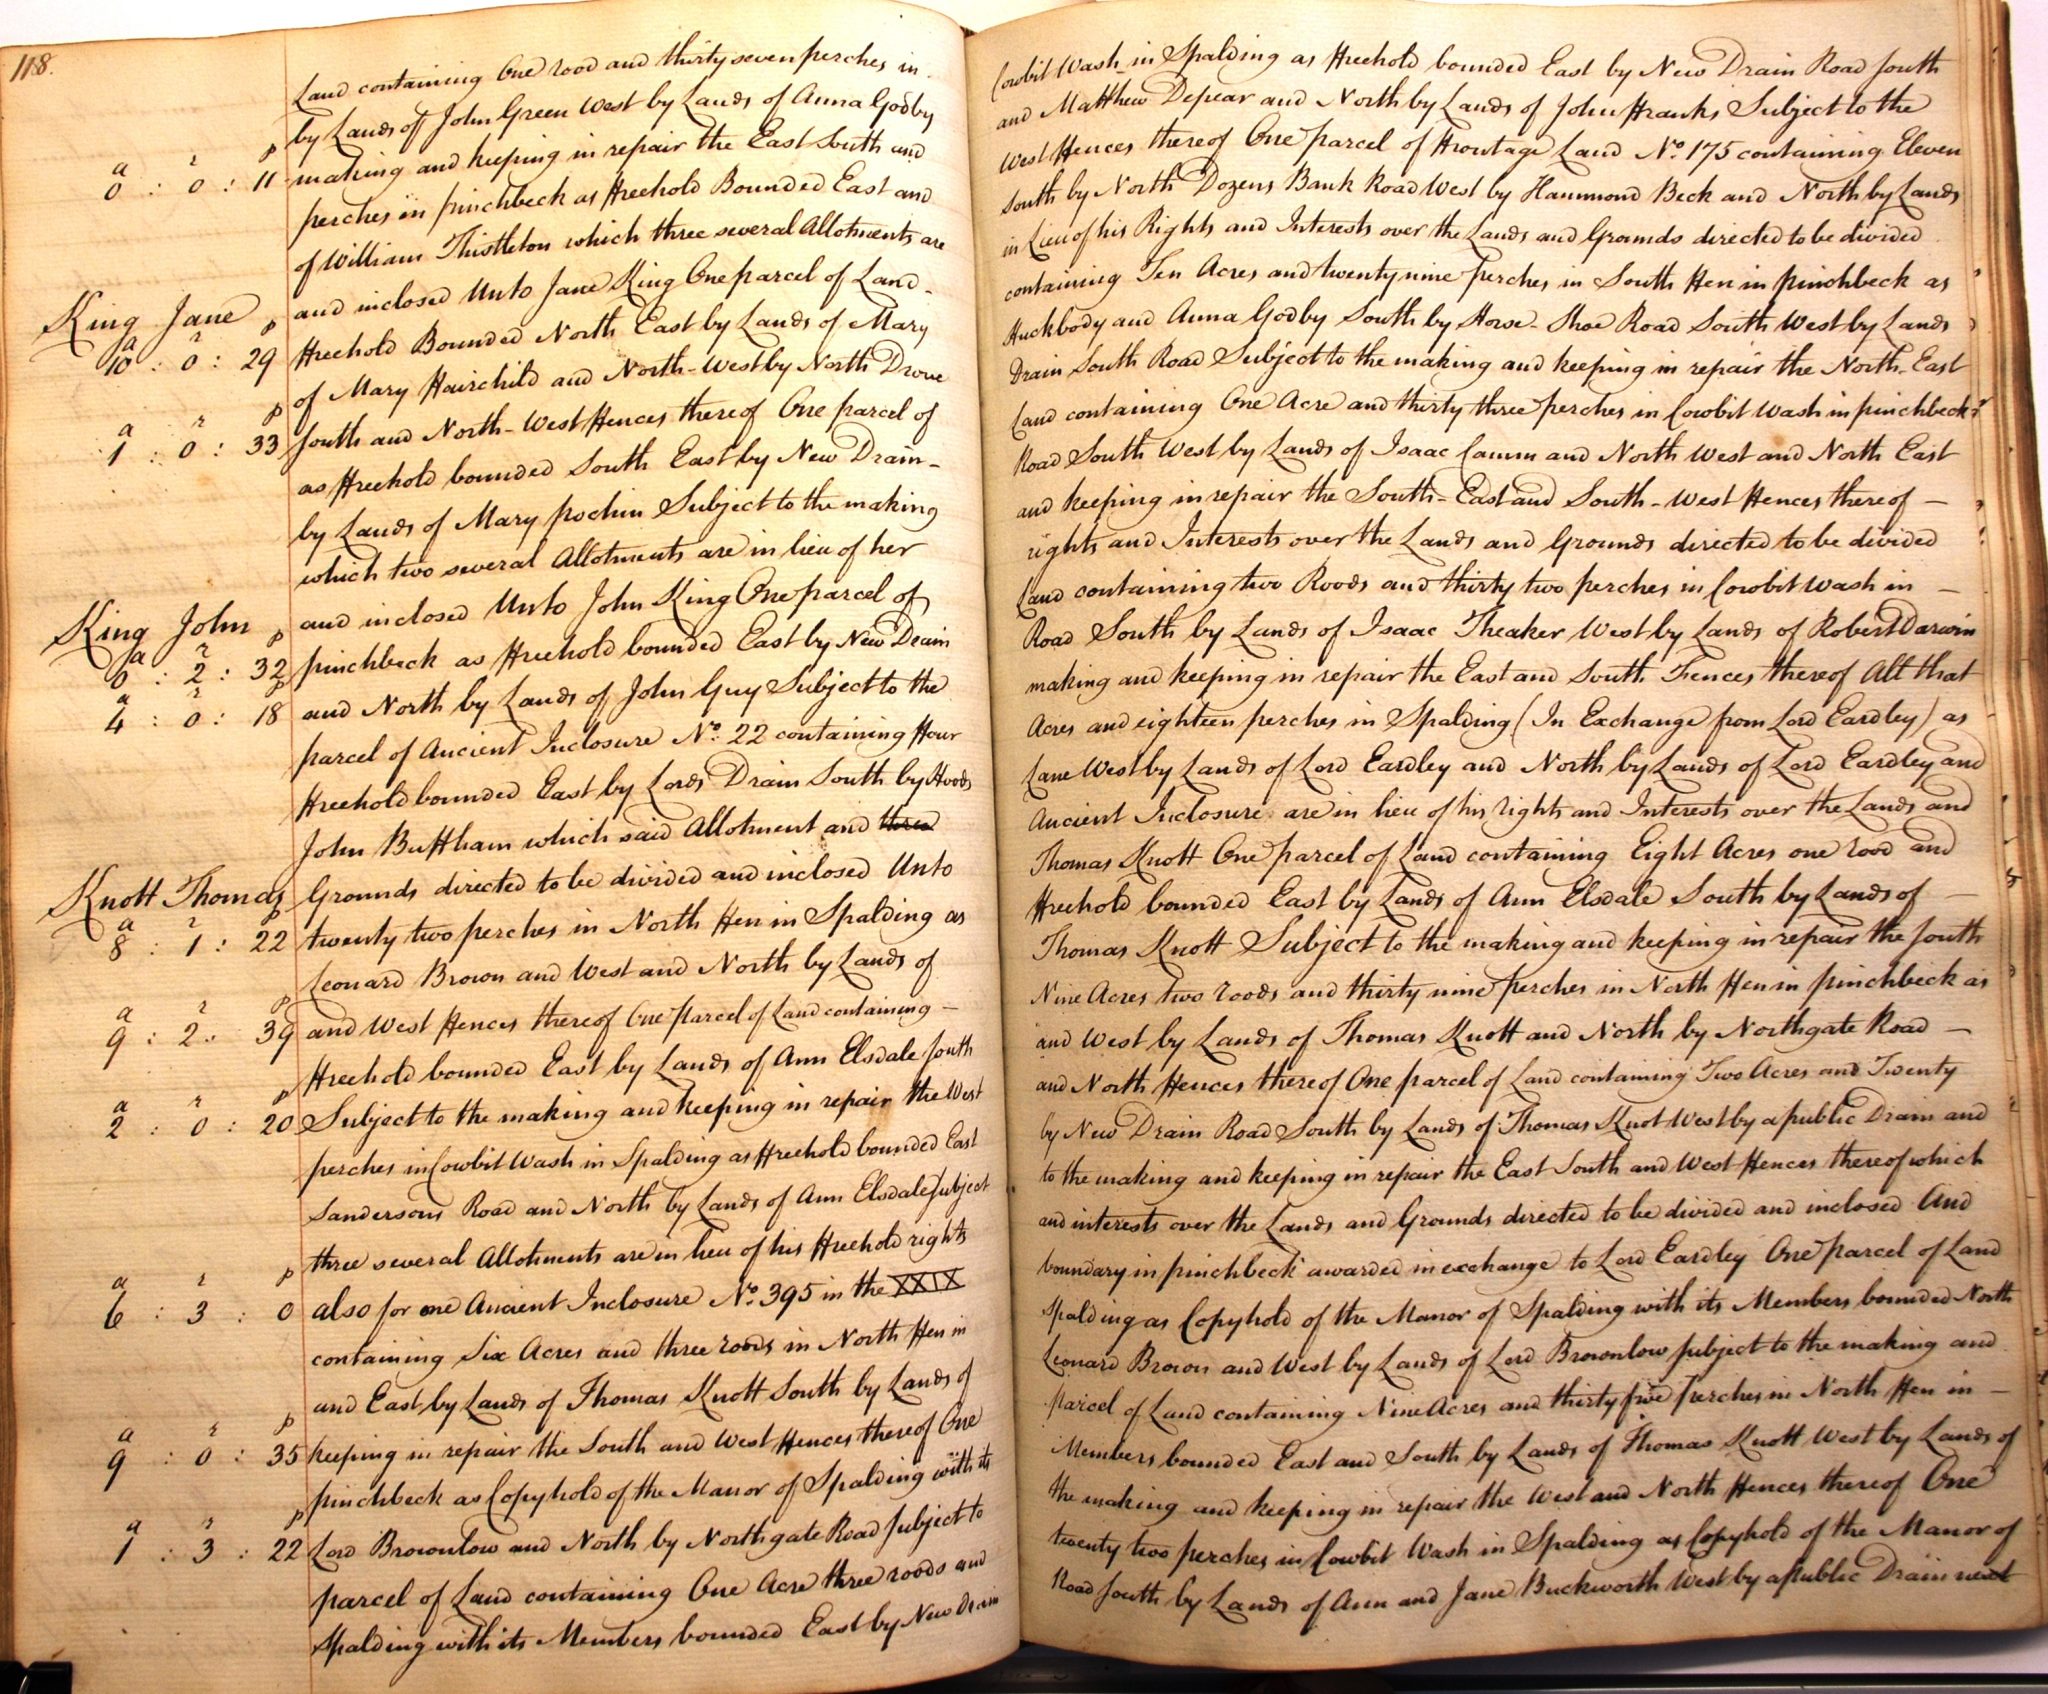 118.
Land containing One rood and thirty seven perches in Cowbit Wash in Spalding as Freehold bounded East by New Drain Road South
by Lands of John Green West by Lands of Anna Godby and Matthew Depear and North by Lands of John Franks Subject to the
a r p
0 : 0 : 11 making and keeping in repair the East South and West Fences thereof One parcel of Frontage Land No. 175 containing Eleven
perches in pinchbeck as Freehold Bounded East and South by North Dozens Bank Road West by Hammond Beck and North by Lands
of William Thistleton which three several Allotments are in Lieu of his Rights and Interests over the Lands and Grounds directed to be divided
King Jane
and inclosed Unto Jane King One parcel of Land - containing Ten Acres and twenty nine perches in South Fen in pinchbeck as
a r p
10 : 0 : 29 Freehold Bounded North East by Lands of Mary Huckbody and Anna Godby South by Horse-Shoe Road South West by Lands
of Mary Fairchild and North-West by North Drove Drain South Road Subject to the making and keeping in repair the North-East
a r p
1 : 0 : 33 South and North-West Fences thereof One parcel of Land containing One Acre and thirty three perches in Cowbit Wash in pinchbeck
as Freehold bounded South East by New Drain - Road South West by Lands of Isaac Camm and North West and North East
by Lands of Mary pochin Subject to the making and keeping in repair the South-East and South-West Fences thereof -
which two several Allotments are in lieu of her rights and Interests over the Lands and Grounds directed to be divided
King John
and inclosed Unto John King One parcel of Land containing two Roods and thirty two perches in Cowbit Wash in -
a r p
0 : 2 : 32 pinchbeck as Freehold bounded East by New Drain Road South by Lands of Isaac Theaker West by Lands of Robert Darwin
a r p
4 : 0 : 18 and North by Lands of John Guy Subject to the making and keeping in repair the East and South Fences thereof All that
parcel of Ancient Inclosure No. 22 containing Four Acres and eighteen perches in Spalding (In Exchange from Lord Eardley) as
Freehold bounded East by Lords Drain South by Hoods Lane West by Lands of Lord Eardley and North by Lands of Lord Eardley and
John Buffham which said Allotment and three Ancient Inclosure are in lieu of his rights and Interests over the Lands and
Knott Thomas
Grounds directed to be divided and inclosed Unto Thomas Knott One parcel of Land containing Eight Acres one rood and
a r p
8 : 1 : 22 twenty two perches in North Fen in Spalding as Freehold bounded East by Lands of Ann Elsdale South by Lands of -
Leonard Brown and West and North by Lands of Thomas Knott Subject to the making and keeping in repair the South
a r p
9 : 2 : 39 and West Fences thereof One parcel of Land containing - Nine Acres two roods and thirty nine perches in North Fen in pinchbeck as
Freehold bounded East by Lands of Ann Elsdale South and West by Lands of Thomas Knott and North by Northgate Road -
a r p
2 : 0 : 20 Subject to the making and keeping in repair the West and North Fences thereof One parcel of Land containing Two Acres and Twenty
perches in Cowbit Wash in Spalding as Freehold bounded East by New Drain Road South by Lands of Thomas Knot West by a public Drain and
Sandersons Road and North by Lands of Ann Elsdale Subject to the making and keeping in repair the East South and West Fences thereof which
three several Allotments are in lieu of his Freehold rights and interests over the Lands and Grounds directed to be divided and inclosed And
a r p
6 : 3 : 0 also for one Ancient Inclosure No. 395 in the XXIX boundary in pinchbeck awarded in exchange to Lord Eardley One parcel of Land
containing Six Acres and three roods in North Fen in Spalding as Copyhold of the Manor of Spalding with its Members bounded North
and East by Lands of Thomas Knott South by Lands of Leonard Brown and West by Lands of Lord Brownlow subject to the making and
a r p
9 : 0 : 35 keeping in repair the South and West Fences thereof One parcel of Land containing Nine Acres and thirty five perches in North Fen in -
pinchbeck as Copyhold of the Manor of Spalding with its Members bounded East and South by Lands of Thomas Knott West by Lands of
a r p
1 : 3 : 22 Lord Brownlow and North by Northgate Road subject to the making and keeping in repair the West and North Fences thereof One
parcel of Land containing One Acre three roods and twenty two perches in Cowbit Wash in Spalding as Copyhold of the Manor of
Spalding with its Members bounded East by New Drain Road South by Lands of Ann and Jane Buckworth West by a Public Drain next